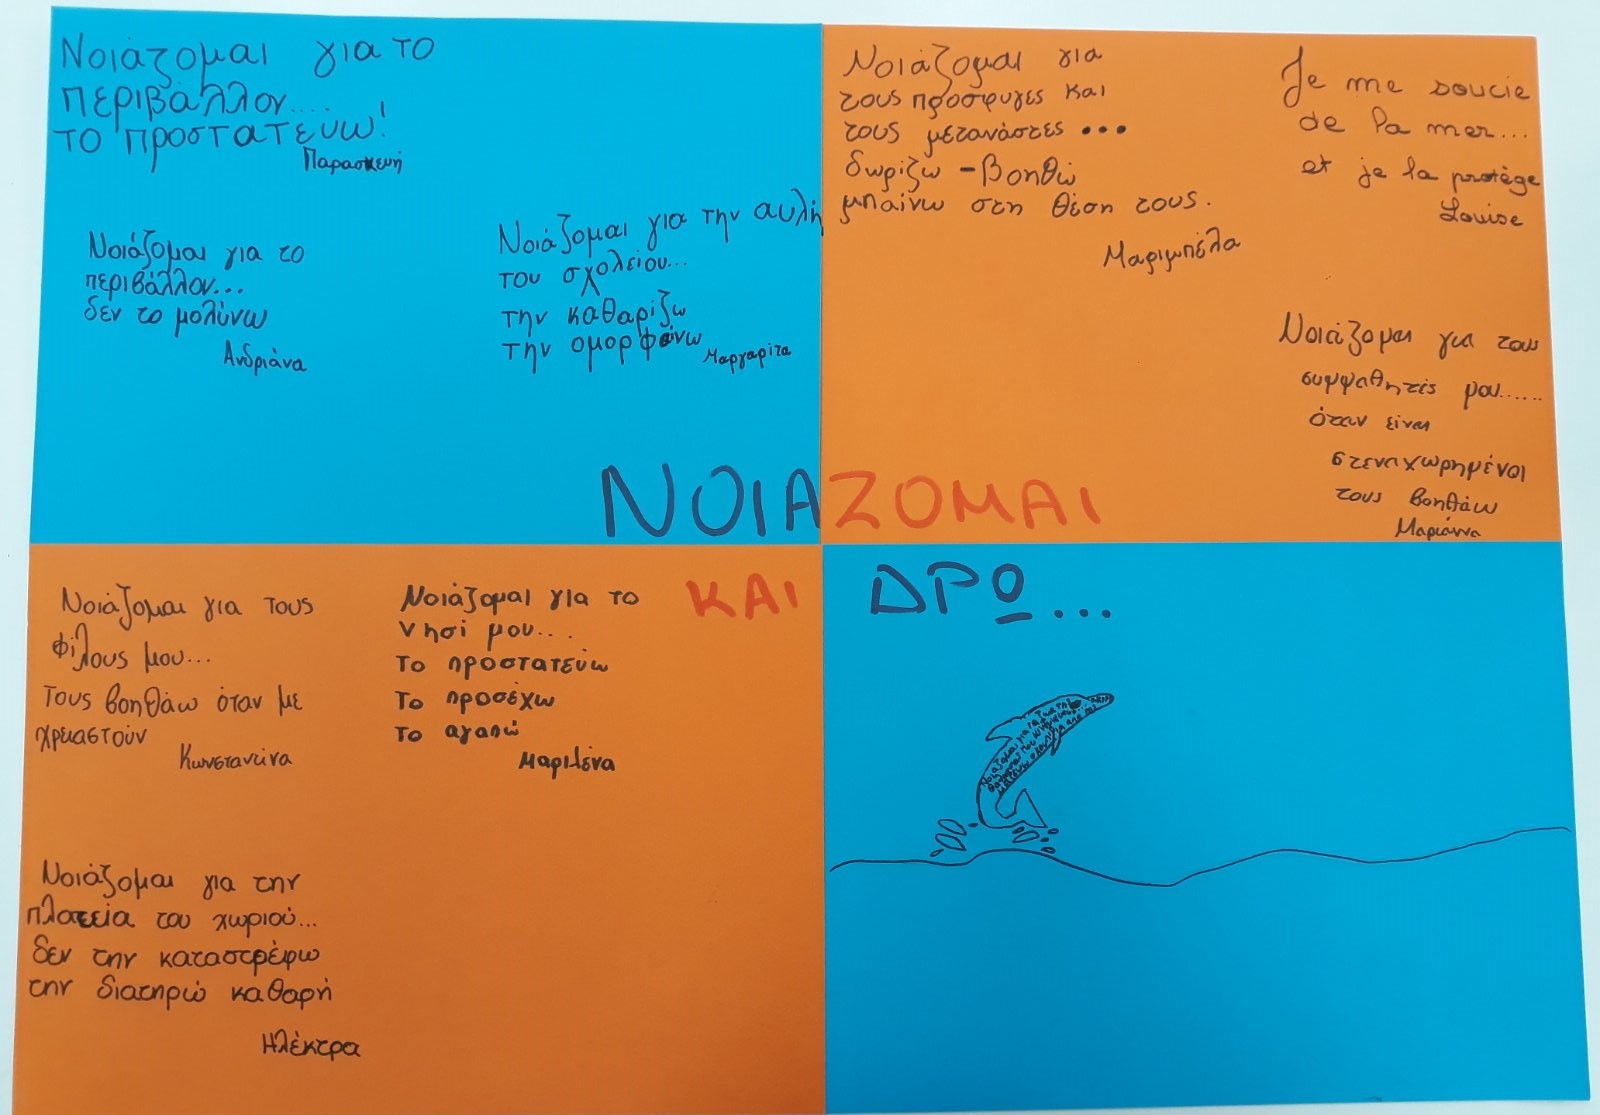 Νοιάζομαι για το
περιβάλλον....
το προστατεύω!
Παρασκευή
Νοιάζομαι για το
περιβάλλον...
δεν το μολύνω
Ανδριάνα
Νοιάζομαι για την αυλή
του σχολείου...
την καθαρίζω
την ομορφαίνω
Μαργαρίτα
Νοιάζομαι για
τους πρόσφυγες και
τους μετανάστες...
δωρίζω - βοηθώ
μπαίνω στη θέση τους.
Μαριμπέλα
Je me soucie
de la mer...
et je la protège
Louise
Νοιάζομαι για τους
συμμαθητές μου......
όταν είναι
στεναχωρημένοι
τους βοηθάω
Μαριάννα
ΝΟΙΑΖΟΜΑΙ
ΚΑΙ ΔΡΩ...
Νοιάζομαι για τους
φίλους μου...
Τους βοηθάω όταν με
χρειαστούν
Κωνσταντίνα
Νοιάζομαι για το
νησί μου...
Το προστατεύω
Το προσέχω
Το αγαπώ
Μαριλένα
Νοιάζομαι για την
πλατεία του χωριού...
δεν την καταστρέφω
την διατηρώ καθαρή
Ηλέκτρα
Νοιάζομαι για τα ζώα της